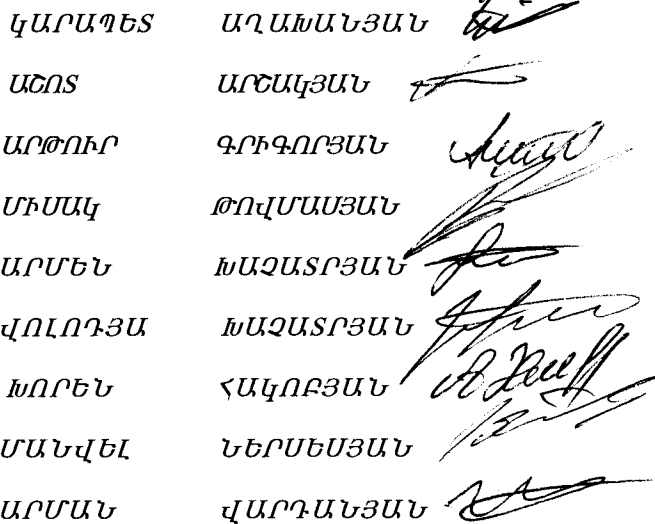 ԿԱՐԱՊԵՏ ԱՂԱԽԱՆՅԱՆ
ԱՇՈՏ ԱՐՇԱԿՅԱՆ
ԱՐԹՈՒՐ ԳՐԻԳՈՐՅԱՆ
ՄԻՍԱԿ ԹՈՎՄԱՍՅԱՆ
ԱՐՄԵՆ ԽԱՉԱՏՐՅԱՆ
ՎՈԼՈԴՅԱ ԽԱՉԱՏՐՅԱՆ
ԽՈՐԵՆ ՀԱԿՈԲՅԱՆ
ՄԱՆՎԵԼ ՆԵՐՍԵՍՅԱՆ
ԱՐՄԱՆ ՎԱՐԴԱՆՅԱՆ